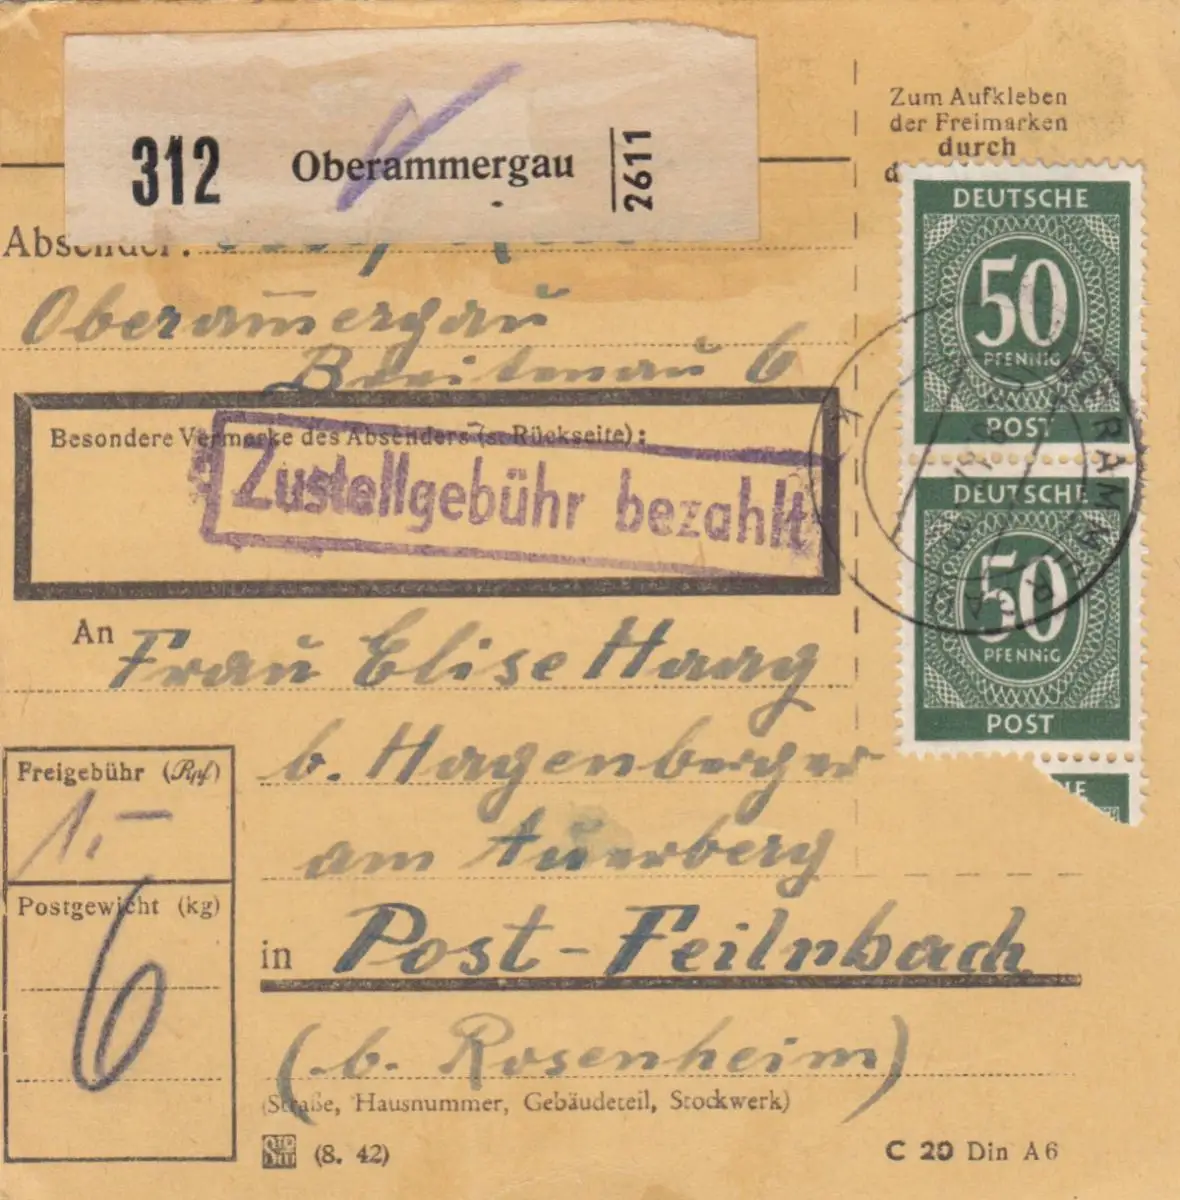 312 Oberammergau 2611
Zum Aufkleben
der Freimarken
durch
Absender:
Oberam̄ergau
Breitenau 6
DEUTSCHE
50
PFENNIG
POST
DEUTSCHE
50
PFENNIG
POST
OBERAMMERGAU
Besondere Vermerke des Absenders (s. Rückseite):
Zustellgebühr bezahlt
An Frau Elise Haag
b. Hagenberger
am Auerberg
in Post-Feilnbach
(b. Rosenheim)
(Straße, Hausnummer, Gebäudeteil, Stockwerk)
Freigebühr (Rpf)
1.-
Postgewicht (kg)
6
(8. 42)
C 20 Din A 6